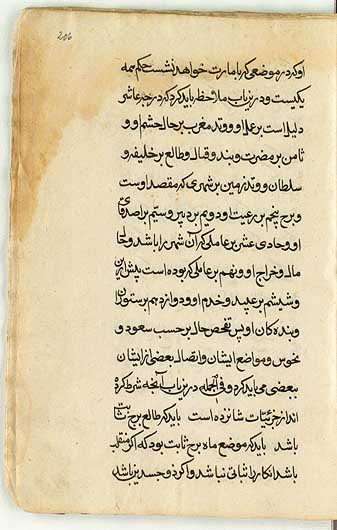 206
او کند در موضعی که بامارت خواهد نشست حکم همه
یکیست و درین باب ملاحظه باید کرد که درجه عاشر
دلیل است بر عمل او و وتد مغرب بر حال حشم او و
ثامن بر مضرت و بند و قتال و طالع بر خلیفه و
سلطان و وتد زمین بر شهری که مقصد اوست
و برج پنجم بر رعیت او دویم بر دبیر و سیم بر اصدقای
او و حادی عشر بر عاملی که آن شهر را باشد و جای
مال و خراج او و نهم بر عاملی که بوده است پیش ازین
و ششم بر عبید و خدم او و دوازدهم بر ستوران
و بندگان او پس تفحص حال بر حسب سعود و
نحوس و مواضع ایشان و اتصال بعضی از ایشان
ببعضی می باید کرد و فی الجمله درین باب آنچه شرط کرده
اند از جزئیات شانزده است باید که طالع برج ثابت
باشد باید که موضع ماه برج ثابت بود که اگر منقلب
باشد آن کار را ثباتی نباشد و اگر ذو جسدین باشد